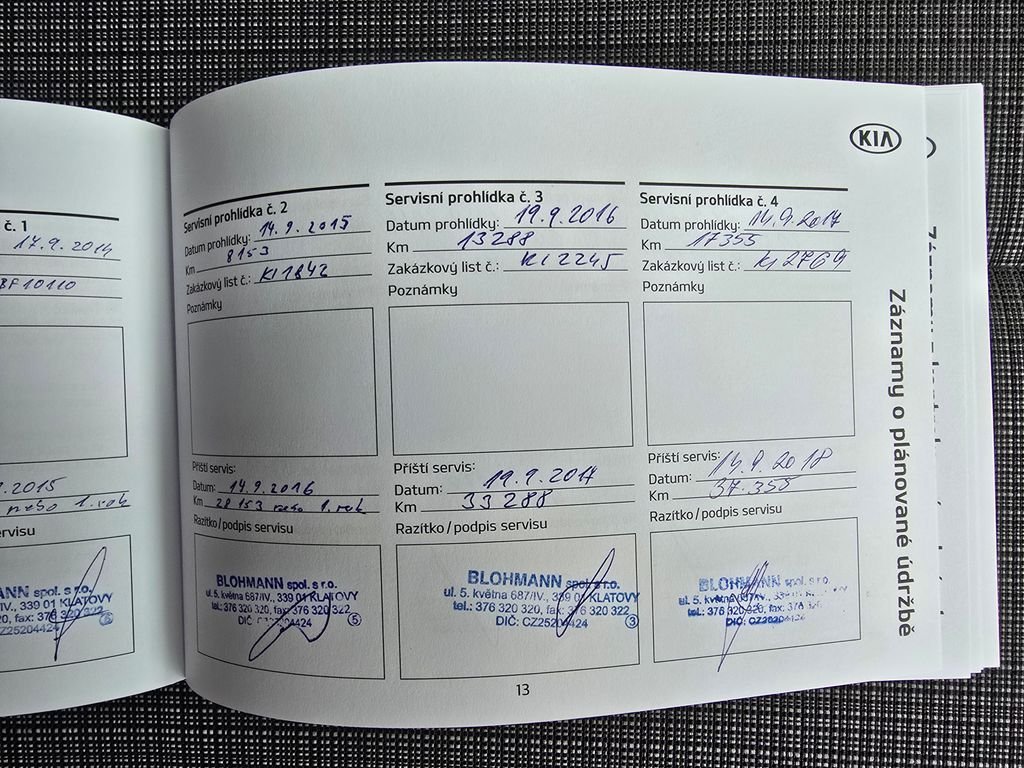 č. 1
17.9.2014
BF10110
.2015
nebo 1.rok
ervisu
ANN spol. s r.o.
/IV., 339 01 KLATOVY
20, fax: 376 320 322
CZ25204424
KIA
Servisní prohlídka č. 2
Datum prohlídky: 14.9.2015
Km 8153
Zakázkový list č.: KI1842
Poznámky
Příští servis:
Datum: 14.9.2016
Km 28153 nebo 1.rok
Razítko/podpis servisu
BLOHMANN spol. s r.o.
ul. 5. května 687/IV., 339 01 KLATOVY
tel.: 376 320 320, fax: 376 320 322
DIČ: 4424
5
Servisní prohlídka č. 3
Datum prohlídky: 19.9.2016
Km 13288
Zakázkový list č.: KI2245
Poznámky
Příští servis:
Datum: 19.9.2017
Km 33288
Razítko/podpis servisu
BLOHMANN spol. s r.o.
ul. 5. května 687/IV., 339 01 KLATOVY
tel.: 376 320 320, fax: 376 320 322
DIČ: CZ25204424
3
Servisní prohlídka č. 4
Datum prohlídky: 14.9.2017
Km 17355
Zakázkový list č.: KI2769
Poznámky
Příští servis:
Datum: 14.9.2018
Km 37.355
Razítko/podpis servisu
BLOHMANN spol. s r.o.
ul. 5. května 687/IV.,
tel.: 376 320 320, fax: 376
DIČ:
Záznamy o plánované údržbě
13